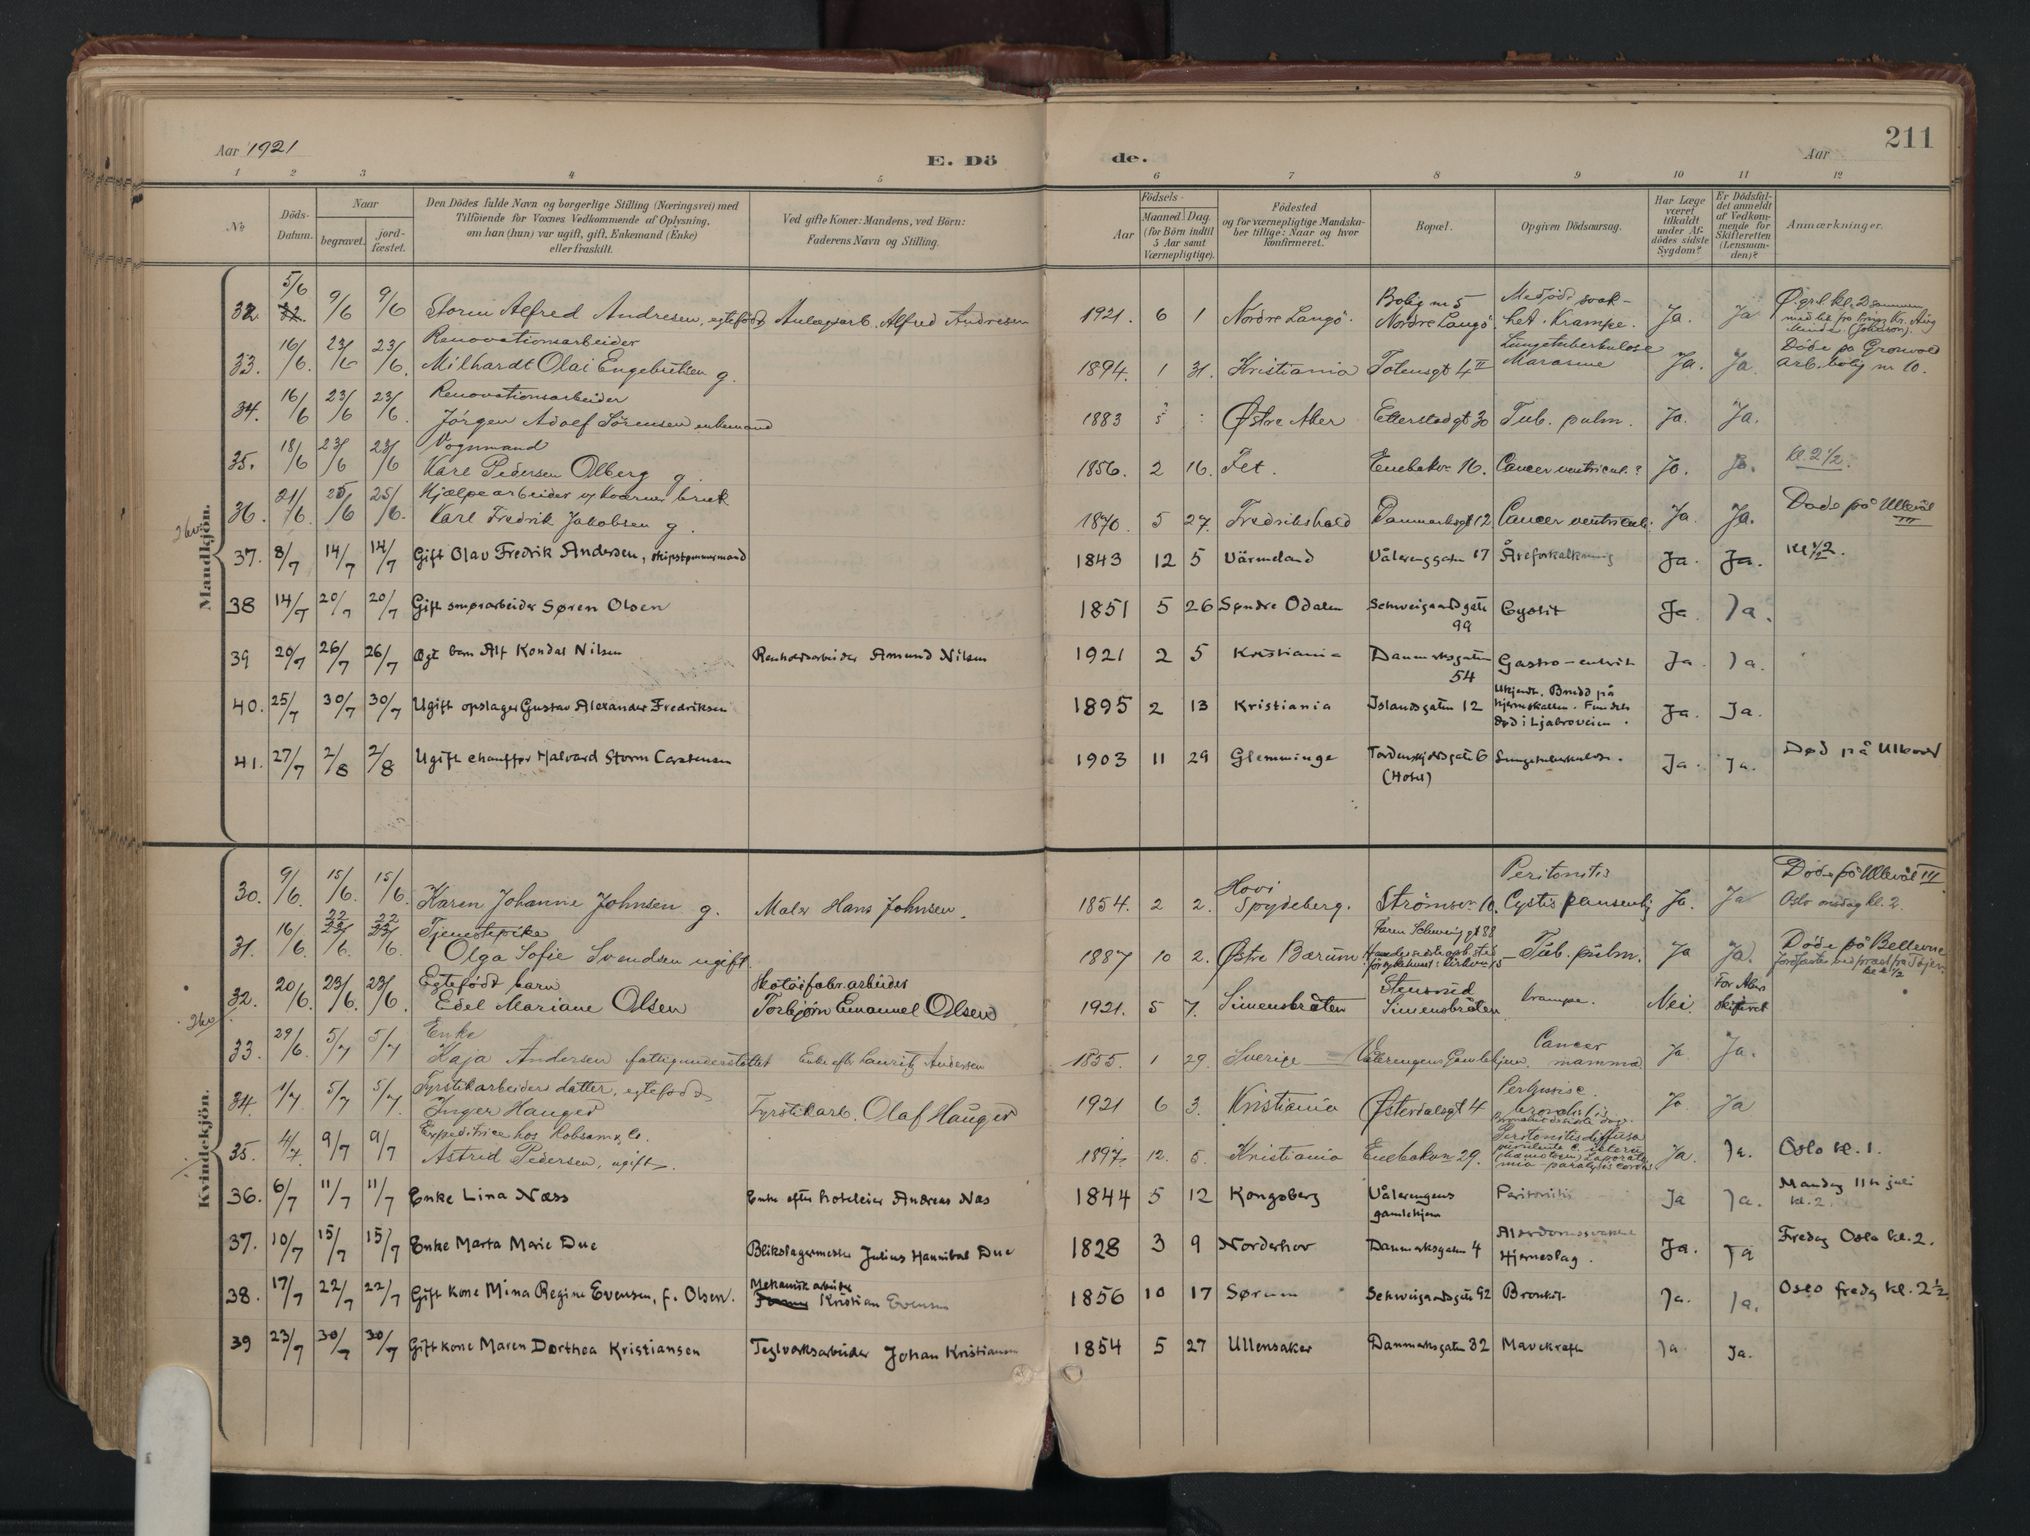 Aar 1921
E. Dö de.
Aar
211
1 2 3 4 5 6 7 8 9 10 11 12
No
Döds-Datum.
Naar
begravet.
jord-fæstet.
Den Dödes fulde Navn og borgerlige Stilling (Næringsvei) med
Tilföiende for Voxnes Vedkommende af Oplysning,
om han (hun) var ugift, gift, Enkemand (Enke)
eller fraskilt.
Ved gifte Koner: Mandens, ved Börn:
Faderens Navn og Stilling.
Födsels-
Aar
Maaned Dag
(for Börn indtil
5 Aar samt
Værnepligtige).
Födested
og for værnepligtige Mandska-
ber tillige: Naar og hvor
konfirmeret.
Bopæl.
Opgiven Dödsaarsag.
Har Læge
været
tilkaldt
under Af-
dödes sidste
Sygdom?
Er Dödsfal-
det anmeldt
af Vedkom-
mende for
Skifteretten
(Lensman-
den)?
Anmærkninger.
Mandkjön.
32. 5/6 9/6 9/6 Storm Alfred Andresen, egtefødt Anlægsarb. Alfred Andresen 1921. 6 1 Nordre Langö. Bolig nr 5 Nordre Langö. Krampe. Ja. Ja
33. 16/6. 23/6 23/6. Renovationsarbeider
Milhardt Olai Engebretsen g. 1894. 1 31. Kristiania Totensgt 4 II Lungetuberkulose Marasme Ja. Ja. Döde på Grönvold
arb. bolig nr 10.
34. 16/6 23/6 23/6. Renovationsarbeider
Jörgen Adolf Sörensen enkemand 1883 Østre Aker Etterstadgt 30 Tub. pulm. Ja. Ja.
35. 18/6 23/6 23/6 Vognmand
Karl Pedersen Olberg g. 1856. 2 16. Fet. Enebakv. 16. Cancer ventricul. ? Ja. Ja. kl. 2 1/2.
36. 21/6. 25/6 25/6. Hjælpearbeider v/ Kværner bruk
Karl Fredrik Jakobsen g. 1870. 5 27. Fredrikshald Danmarksgt 12. Cancer ventriculi Ja. Ja. Döde på Ullevål III
37. 8/7 14/7 14/7 Gift Olav Fredrik Andersen, skipstømmermand 1843 12 5 Värmeland Vålerenggaten 17 Åreforkalkning Ja. Ja. Kl 1/2 2.
38 14/7 20/7 20/7 Gift smørarbeider Søren Olsen 1851 5 26 Søndre Odalen Schweigaardsgate
99 Cystit Ja Ja.
39 20/7 26/7 26/7 Ægt barn Alf Kondal Nilsen Renholdsarbeider Amund Nilsen 1921 2 5 Kristiania Danmarksgaten
54 Gastro-enterit Ja. Ja.
40. 25/7 30/7 30/7 Ugift opslager Gustav Alexander Fredriksen 1895 2 13 Kristiania Islandsgaten 12 Ukjendt. Brudd på
hjerneskallen. Fundet
død i Ljabroveien. Ja. Ja.
41. 27/7 2/8 2/8 Ugift chauffør Halvard Storm Carstensen 1903 11 29 Glemminge Tordenskjoldsgate 6
(Hotel) Lungetuberkulose. Ja. Ja. Død på Ullevål
Kvindekjön.
30. 9/6. 15/6. 15/6. Karen Johanne Johnsen g. Maler Hans Johnsen. 1854. 2 2. Hovi
Spydeberg. Strömsv. 10. Peritonitis
Ja. Ja Döde på Ullevål III.
Oslo onsdag kl. 2.
31. 16/6. 22/6. 22/6. Tjenestepike
Olga Sofie Svendsen ugift. 1887 10 2. Østre Bærum Tub. pulm. Ja Ja. Döde på Bellevue
32. 20/6. 23/6. 23/6. Egtefødt barn
Edel Mariane Olsen Skotöifabr. arbeider
Torbjørn Emanuel Olsen 1921. 5 7. Simensbråten Stensrud
Simensbråten Krampe. Nei. For Akers
skifteret
33. 29/6. 5/7 5/7 Enke
Kaja Andersen fattigunderstöttet Enke efter Lauritz Andersen 1855. 1 29. Sverige Vålerengens Gamlehjem Cancer
mamma. Ja Ja.
34. 1/7 5/7 5/7 Fyrstikarbeiders datter, egtefødt
Inger Hauger Fyrstikarb. Olaf Hauger 1921 6 3. Kristiania Østerdalsgt 4 Ja Ja
35. 4/7 9/7 9/7 Expeditrice hos
Astrid Pedersen, ugift. 1897. 12. 5. Kristiania Enebakvn 29. Peritonitis diffusa
Ja. Ja. Oslo kl. 1.
36. 6/7 11/7 11/7 Enke Lina Næss Enke efter hoteleier Andreas Næs 1844 5 12 Kongsberg Vålerengens
gamlehjem Peritonitis Ja Ja. Mandag 11te juli
kl. 2.
37. 10/7 15/7 15/7 Enke Marta Marie Due Blikslagermester Julius Hannibal Due 1828 3 9 Norderhov Danmarksgaten 4 Alderdomssvakhet
Hjerneslag. Ja. Ja Fredag Oslo kl. 2.
38. 17/7 22/7 22/7 Gift kone Mina Regine Evensen, f. Olsen. Mekanisk arbeider
Kristian Evensen 1856 10 17 Sørum Schweigaardsgate 92 Bronkit Ja. Ja. Oslo fredag kl. 2 1/2
39 23/7 30/7 30/7 Gift kone Maren Dorthea Kristiansen Teglverksarbeider Johan Kristiansen 1854 5 27 Ullensaker Danmarksgaten 32 Mavekræft Ja. Ja.